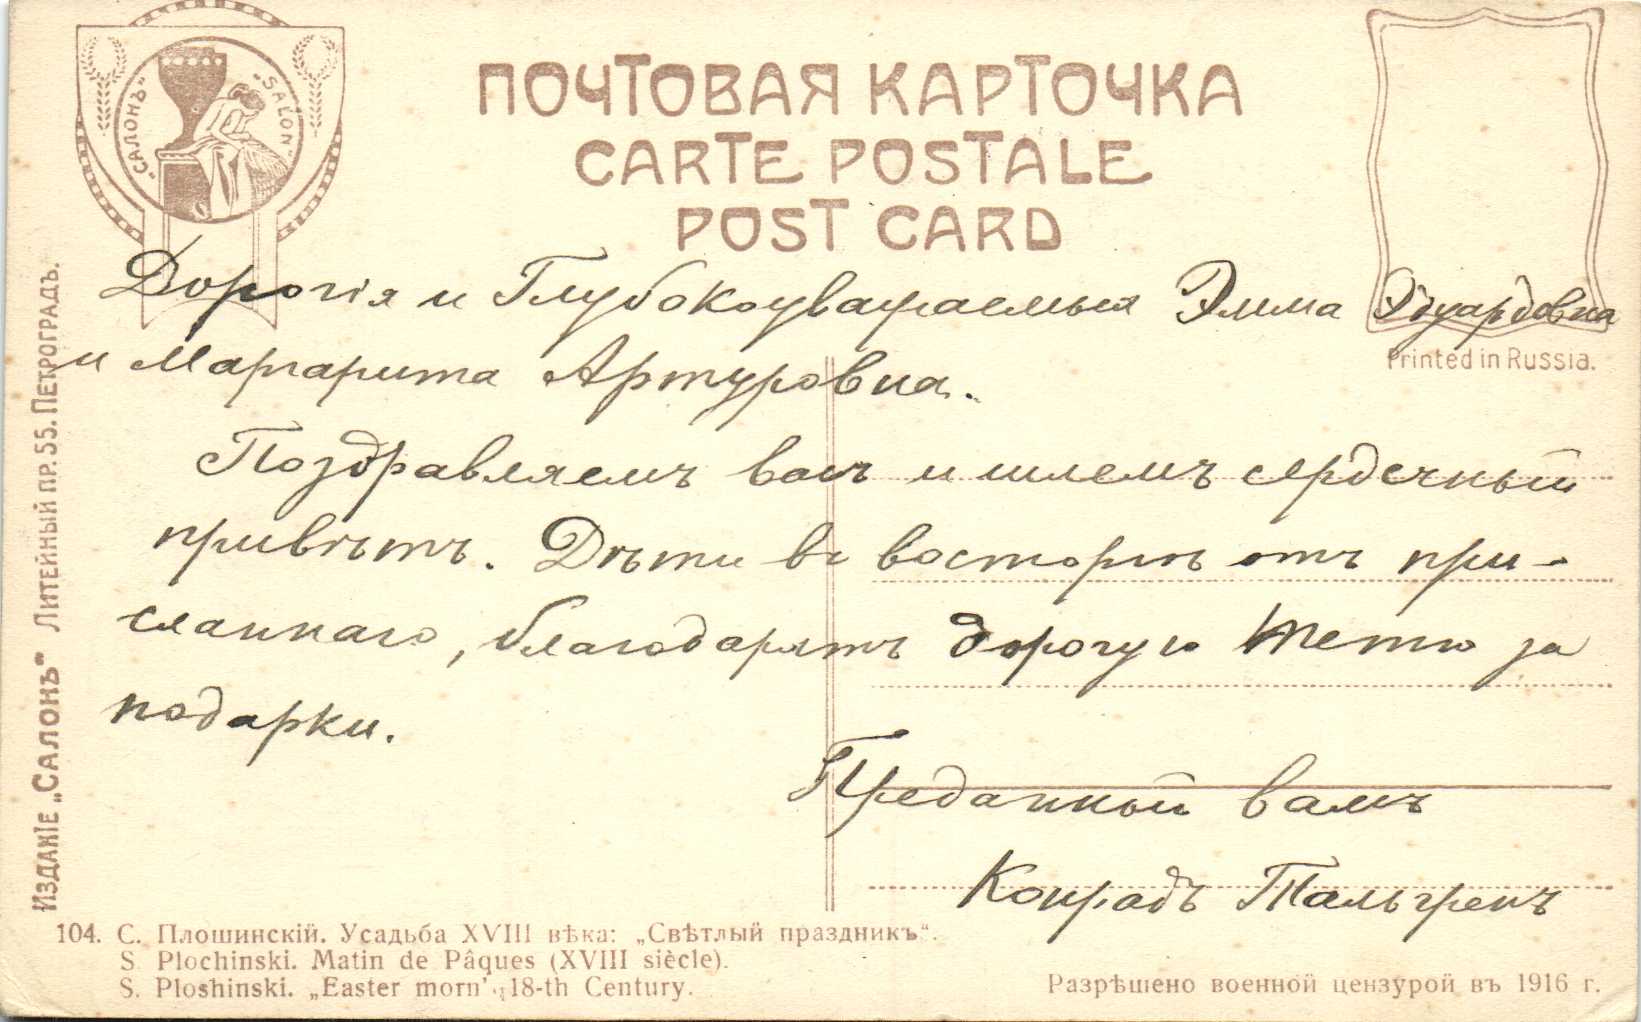 „САЛОНЪ“ „SALON“
ПОЧТОВАЯ КАРТОЧКА
CARTE POSTALE
POST CARD
Дорогія и Глубокоуважаемыя Эмма Эдуардовна
и Маргарита Артуровна.
Printed in Russia.
Поздравляемъ васъ и шлемъ сердечный
привѣтъ. Дѣти въ восторгѣ отъ при-
сланнаго, благодарятъ дорогую Тетю за
подарки.
Преданный вамъ
Конрадъ Тальгренъ
Изданіе „Салонъ“ Литейный пр. 55. Петроградъ.
104. С. Плошинскій. Усадьба XVIII вѣка: „Свѣтлый праздникъ“.
S. Plochinski. Matin de Pâques (XVIII siècle).
S. Ploshinski. „Easter morn“ 18-th Century.
Разрѣшено военной цензурой въ 1916 г.